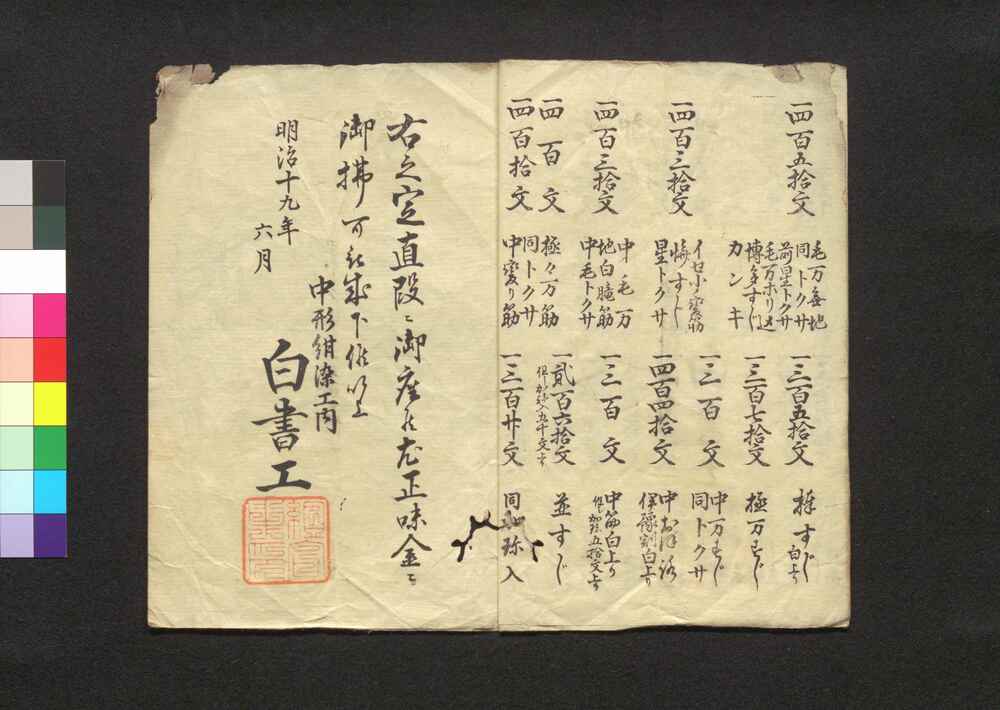 一四百五拾文
毛万無地
同トクサ
前星トクサ
毛万ホリ込
博多すじ
カンキ
一四百三拾文
星トクサ
一四百三拾文
中毛万
地白瞳筋
中毛トクサ
一四百文
極々万筋
同トクサ
一四百拾文
中変り筋
一三百五拾文
棒すじ
白上ケ
一三百七拾文
極万すじ
一三百文
中万すじ
同トクサ
一四百四拾文
伊豫割白上ケ
一三百文
中筋白上り
一貳百六拾文
並すじ
一三百廾文
同弥入
右之定直段ニ御座候尤正味金ニ
御拂可被成下候以上
明治十九年
六月
中形紺染工内
白書工